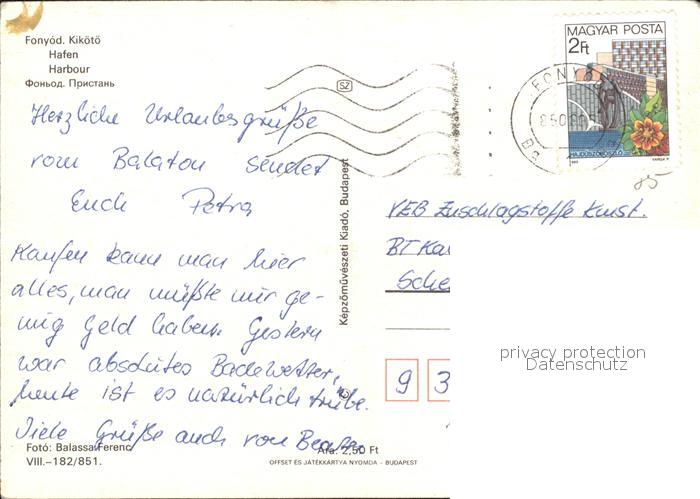 Fonyód. Kikötő
Hafen
Harbour
Фоньод. Пристань
MAGYAR POSTA
2Ft
HAJDÚSZOBOSZLÓ
FONYÓD
SZ
85
Herzliche Urlaubsgrüße
vom Balaton sendet
Euch Petra
Kaufen kann man hier
alles, man müßte nur ge-
nug Geld haben. Gestern
war absolutes Badewetter,
heute ist es natürlich trübe.
Viele Grüße auch von Beate
Képzőművészeti Kiadó, Budapest
VEB Zuschlagstoffe Kunst.
BT Ka
Sche
9 3
privacy protection
Datenschutz
Fotó: Balassa Ferenc
Ára: 2,50 Ft
VIII.–182/851.
OFFSET ÉS JÁTÉKKÁRTYA NYOMDA – BUDAPEST